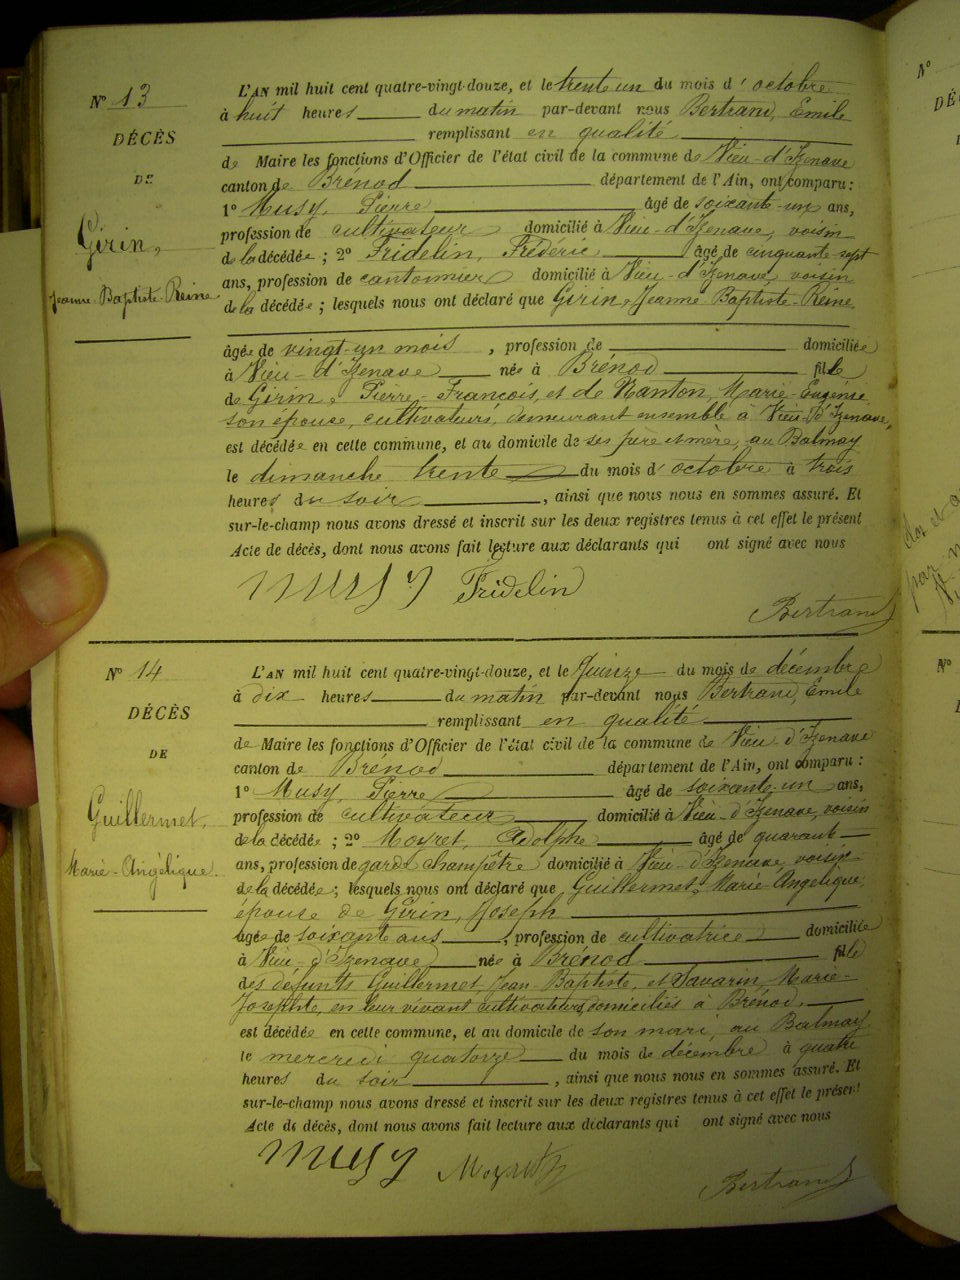 N° 13
DÉCÈS
DE
Girin,
Jeanne Baptiste Reine
L'AN mil huit cent quatre-vingt-douze, et le trente un du mois d'octobre
à huit heures du matin par-devant nous Bertrand, Emile
remplissant en qualité
de Maire les fonctions d'Officier de l'état civil de la commune de Vieu-d'Izenave
canton de Brénod département de l'Ain, ont comparu :
1° Musy, Pierre âgé de soixante-un ans,
profession de cultivateur domicilié à Vieu-d'Izenave, voisin
de la décédée ; 2° Fridelin, Frédéric âgé de cinquante-sept
ans, profession de cantonnier domicilié à Vieu-d'Izenave voisin
de la décédée ; lesquels nous ont déclaré que Girin, Jeanne Baptiste-Reine
âgée de vingt-un mois , profession de domiciliée
à Vieu-d'Izenave née à Brénod fille
de Girin, Pierre-François, et de Nanton, Marie-Eugénie
son épouse, cultivateurs, demeurant ensemble à Vieu-d'Izenave,
est décédée en cette commune, et au domicile de ses père et mère, au Balmay
le dimanche trente du mois d'octobre à trois
heures du soir , ainsi que nous nous en sommes assuré. Et
sur-le-champ nous avons dressé et inscrit sur les deux registres tenus à cet effet le présent
Acte de décès, dont nous avons fait lecture aux déclarants qui ont signé avec nous
Musy Fridelin
Bertrand
N° 14
DÉCÈS
DE
Guillermet,
Marie-Angélique.
L'AN mil huit cent quatre-vingt-douze, et le Quinze du mois de décembre
à dix heures du matin par-devant nous Bertrand, Emile
remplissant en qualité
de Maire les fonctions d'Officier de l'état civil de la commune de Vieu-d'Izenave
canton de Brénod département de l'Ain, ont comparu :
1° Musy, Pierre âgé de soixante-un ans,
profession de cultivateur domicilié à Vieu-d'Izenave, voisin
de la décédée ; 2° Moyret, Adolphe âgé de quarante
ans, profession de garde champêtre domicilié à Vieu-d'Izenave, voisin
de la décédée ; lesquels nous ont déclaré que Guillermet, Marie-Angélique,
épouse de Girin, Joseph
âgée de soixante ans , profession de cultivatrice domiciliée
à Vieu-d'Izenave née à Brénod fille
des défunts Guillermet, Jean Baptiste, et Savarin, Marie-
Josephte, en leur vivant cultivateurs domiciliés à Brénod,
est décédée en cette commune, et au domicile de son mari, au Balmay
le mercredi quatorze du mois de décembre à quatre
heures du soir , ainsi que nous nous en sommes assuré. Et
sur-le-champ nous avons dressé et inscrit sur les deux registres tenus à cet effet le présent
Acte de décès, dont nous avons fait lecture aux déclarants qui ont signé avec nous
Musy Moyret
Bertrand
N°
DÉ
clos et
par
N°